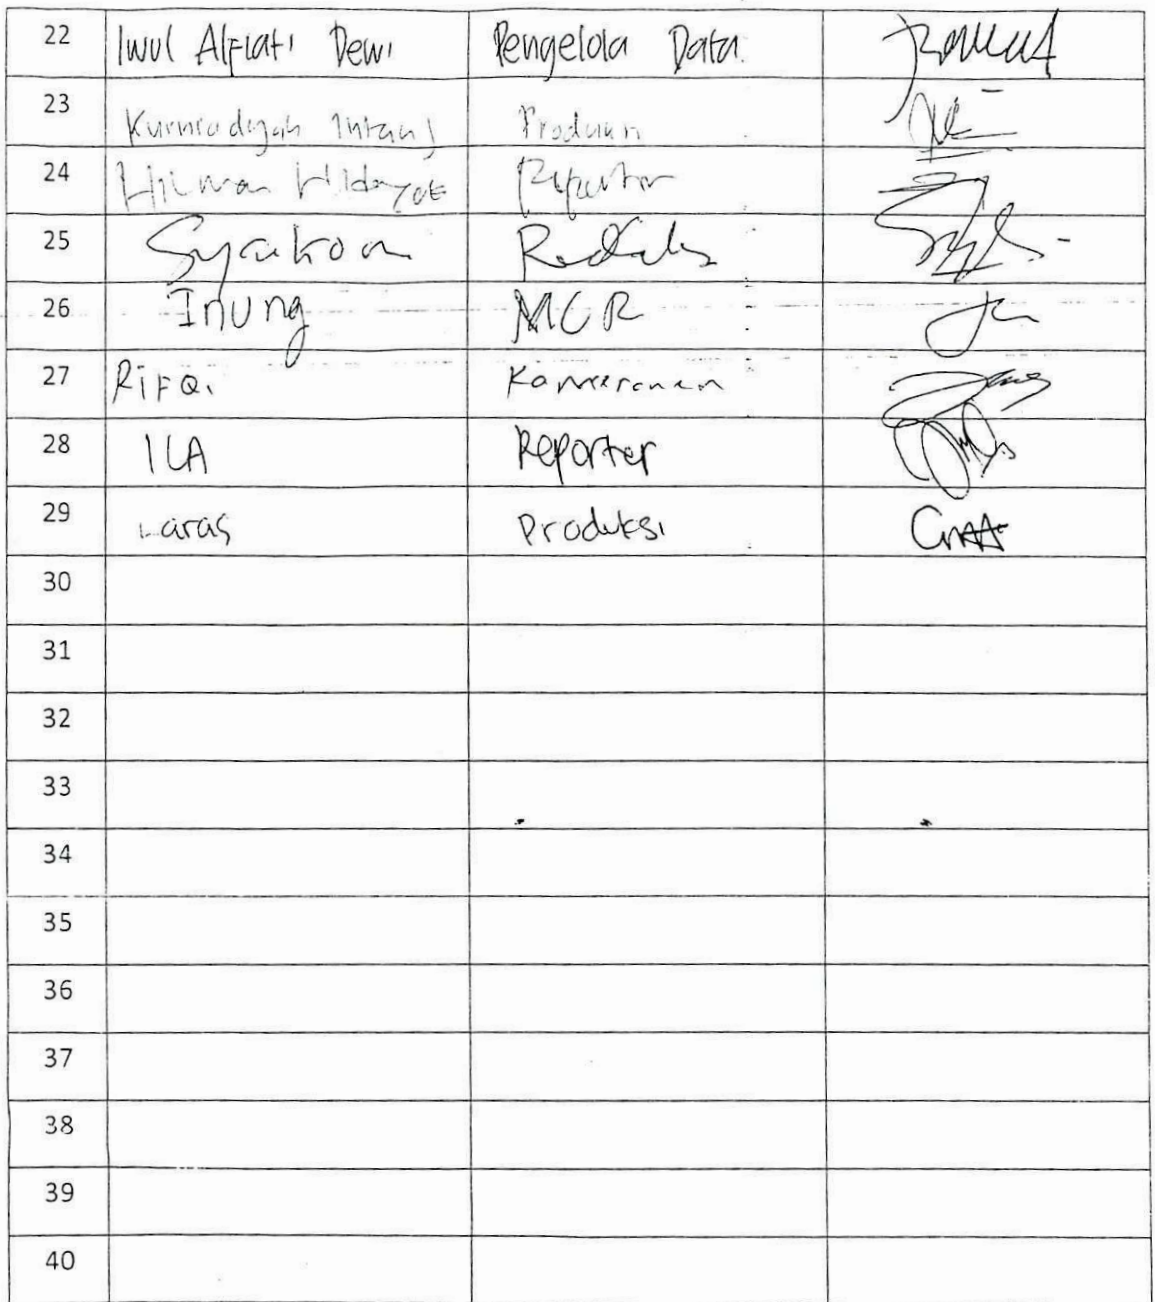 22 Iwul Alfiati Dewi Pengelola Data
23
24 Hilman Hidayat Reporter
25 Syaekoni Redaksi
26 Inung MCR
27 RiFQi Kameraman
28 ILA Reporter
29 Laras Produksi
30
31
32
33
34
35
36
37
38
39
40